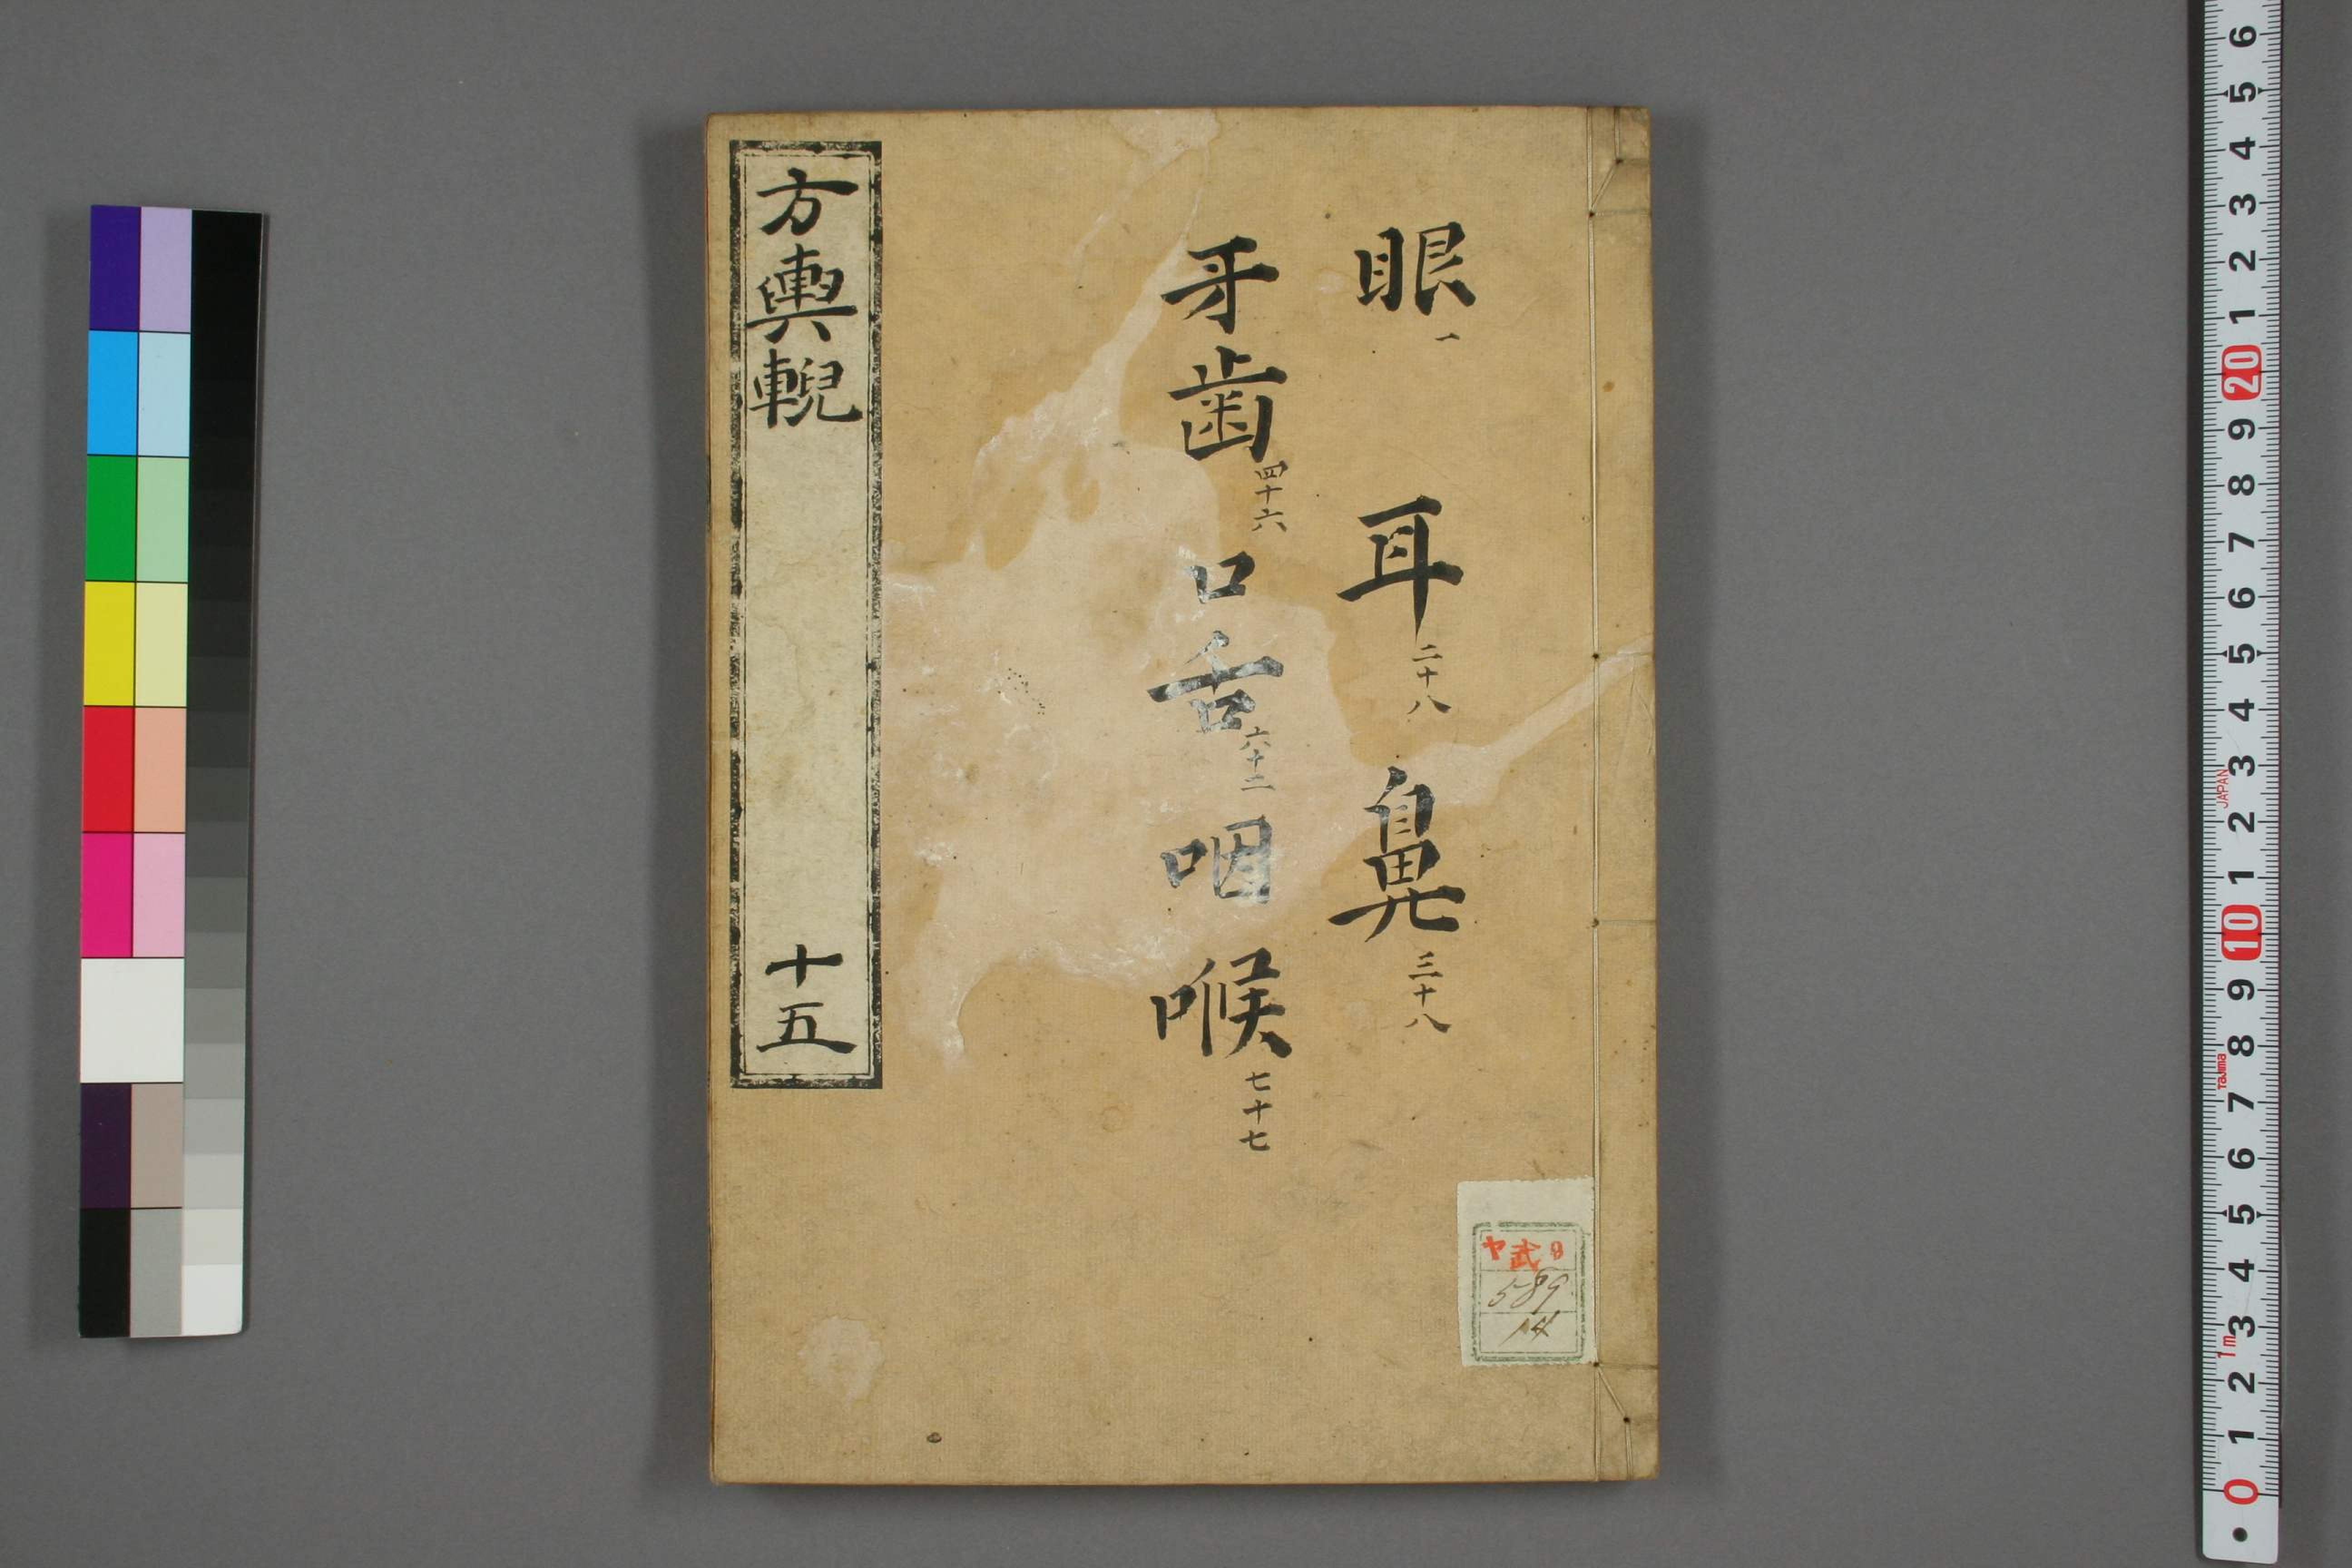 眼一 耳二十八 鼻三十八
牙歯四十六 口舌六十二 咽喉七十七
方輿輗 十五
ヤ武9
589
14
6 5 4 3 2 1 20 9 8 7 6 5 4 3 2 1 10 9 8 7 6 5 4 3 2 1 0
JAPAN
Tajima
1m